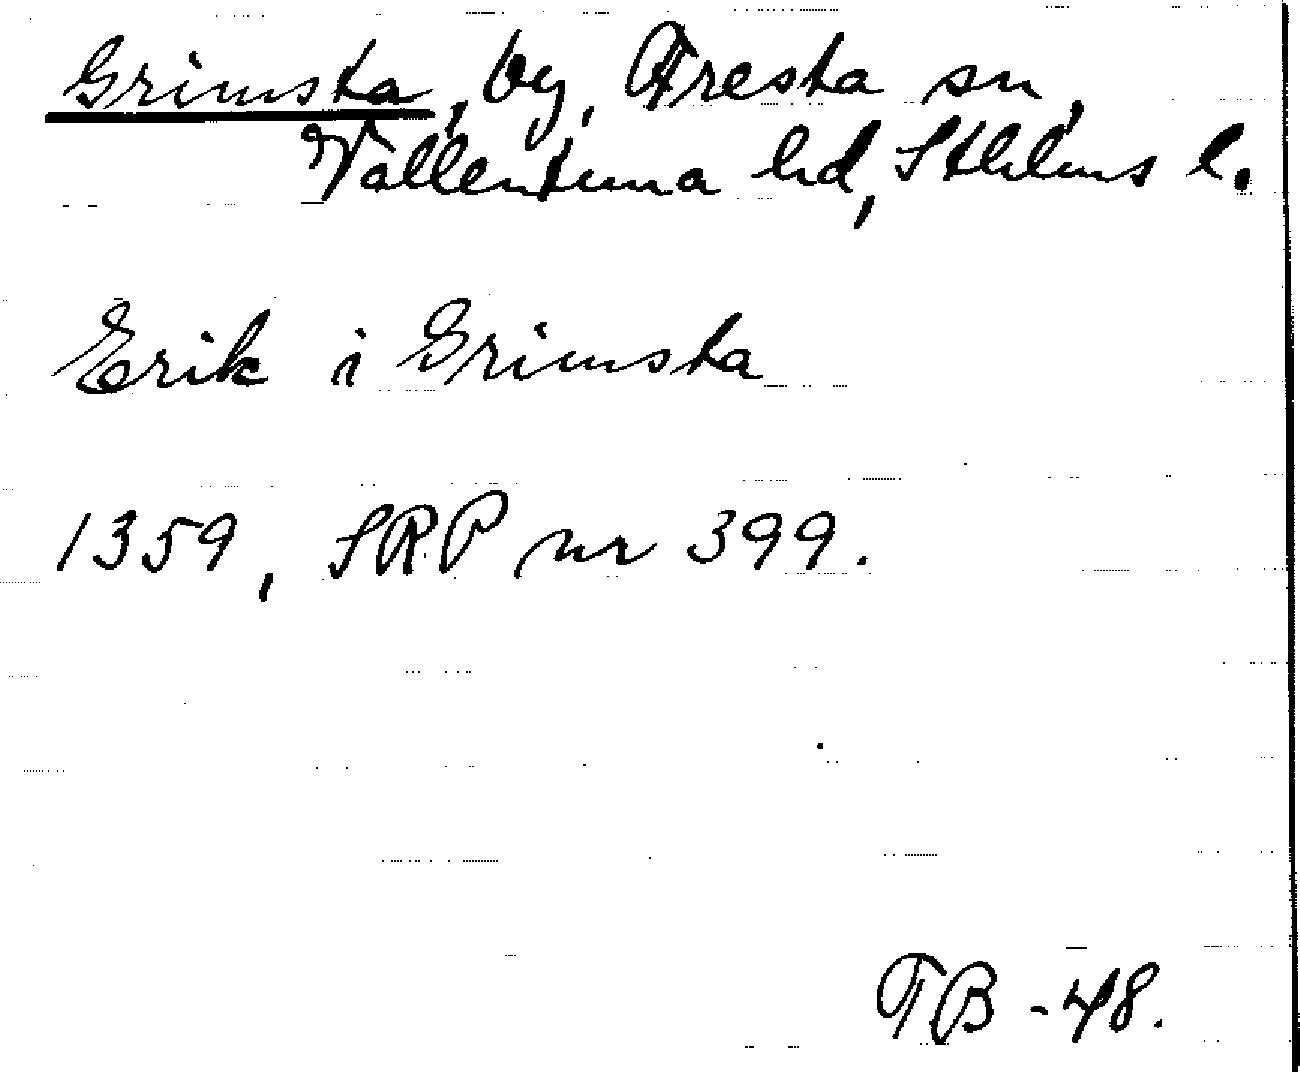 Grimsta, by, Fresta sn,
Vallentuna hd, Sthlms l.
Erik i Grimsta
1359, SRP nr 399.
TB -48.